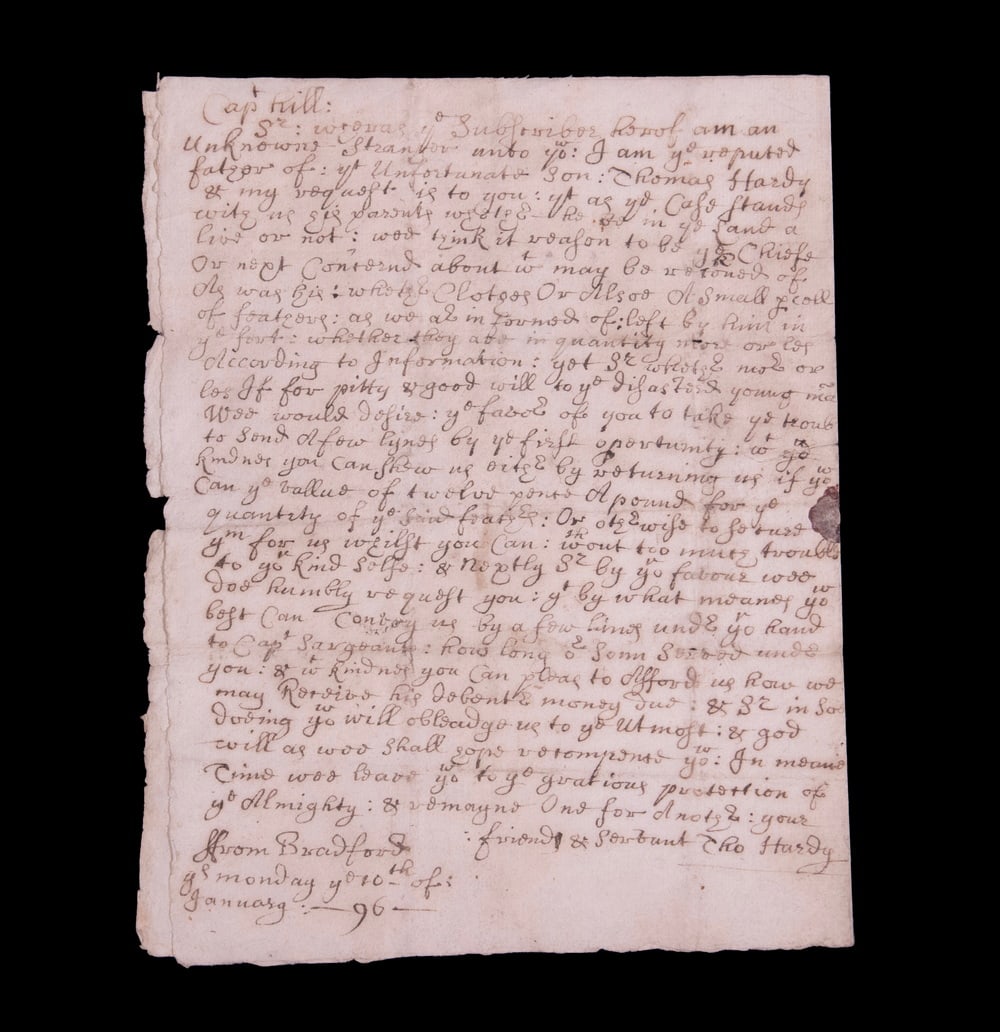 Capt hill:
Sr: wheras ye Subscriber herof am an
Unknowne Stranger unto yo: I am ye reputed
father of: yt Unfortunate Son: Thomas Hardy
& my request is to you: yt as ye Case stands
with us his parents whethr he be in ye Land a
live or not: wee think it reason to be ye Chiefe
Or next Concernd about wt may be of
As was his: whethr Clothes Or Alsoe A Small pcell
of feathers: as we as informed of: left by him in
ye fort: whether they are in quantity more or les
According to Information: yet Sr whethr mor or
les If for pitty & good will to ye disasterd young ma
Wee would desire: ye favor of you to take ye troub
to Send A few lynes by ye first opertunity: wt
kindnes you Can shew us eithr by returning us if yo
Can ye vallue of twelve pence A pound for ye
quantity of ye said feathr: Or othrwise to secure
ym for us whilst you Can: wthout too much trouble
to yor kind Selfe: & Nextly Sr by yor favour wee
doe humbly request you: yt by what meanes yo
best Can Convey us by a few lines undr yor hand
to Capt Sargeant: how long or Sonn Served undr
you: & wt kindnes you Can pleas to Afford us how we
may Receive his debentr money due: & Sr in Soe
doeing yo will obleadge us to ye Utmost: & god
will as wee Shall hope recompense yo: In meane
Time wee leave yo to ye gratious protection of
ye Almighty: & remayne One for Anothr: your
friends & Servant Tho Hardy
ffrom Bradford
ys monday ye 10th of:
January:—96—